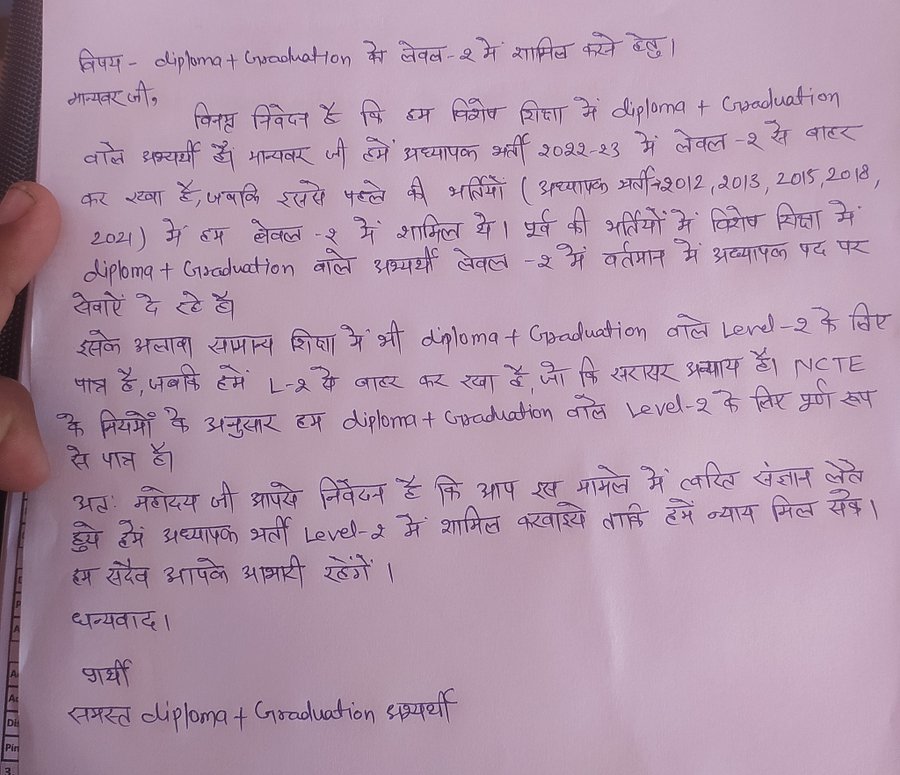 विषय - diploma + Graduation को लेवल-२ में शामिल करने हेतु।
मान्यवर जी,
विनम्र निवेदन है कि हम विशेष शिक्षा में diploma + Graduation
वाले अभ्यर्थी है। मान्यवर जी हमें अध्यापक भर्ती २०२२-२३ में लेवल-२ से बाहर
कर रखा है, जबकि इससे पहले की भर्तियों (अध्यापक भर्ती→2012, 2013, 2015, 2018,
2021) में हम लेवल-२ में शामिल थे। पूर्व की भर्तियों में विशेष शिक्षा में
diploma + Graduation वाले अभ्यर्थी लेवल-२ में वर्तमान में अध्यापक पद पर
सेवाऐं दे रहे है।
इसके अलावा सामान्य शिक्षा में भी diploma + Graduation वाले Level-२ के लिए
पात्र है, जबकि हमें L-२ से बाहर कर रखा है, जो कि सरासर अन्याय है। NCTE
के नियमों के अनुसार हम diploma + Graduation वाले Level-२ के लिए पूर्ण रूप
से पात्र है।
अतः महोदय जी आपसे निवेदन है कि आप इस मामले में त्वरित संज्ञान लेते
हुये हमें अध्यापक भर्ती Level-२ में शामिल करवाइये ताकि हमें न्याय मिल सके।
हम सदैव आपके आभारी रहेंगें।
धन्यवाद।
प्रार्थी
समस्त diploma + Graduation अभ्यर्थी
Pin
3.